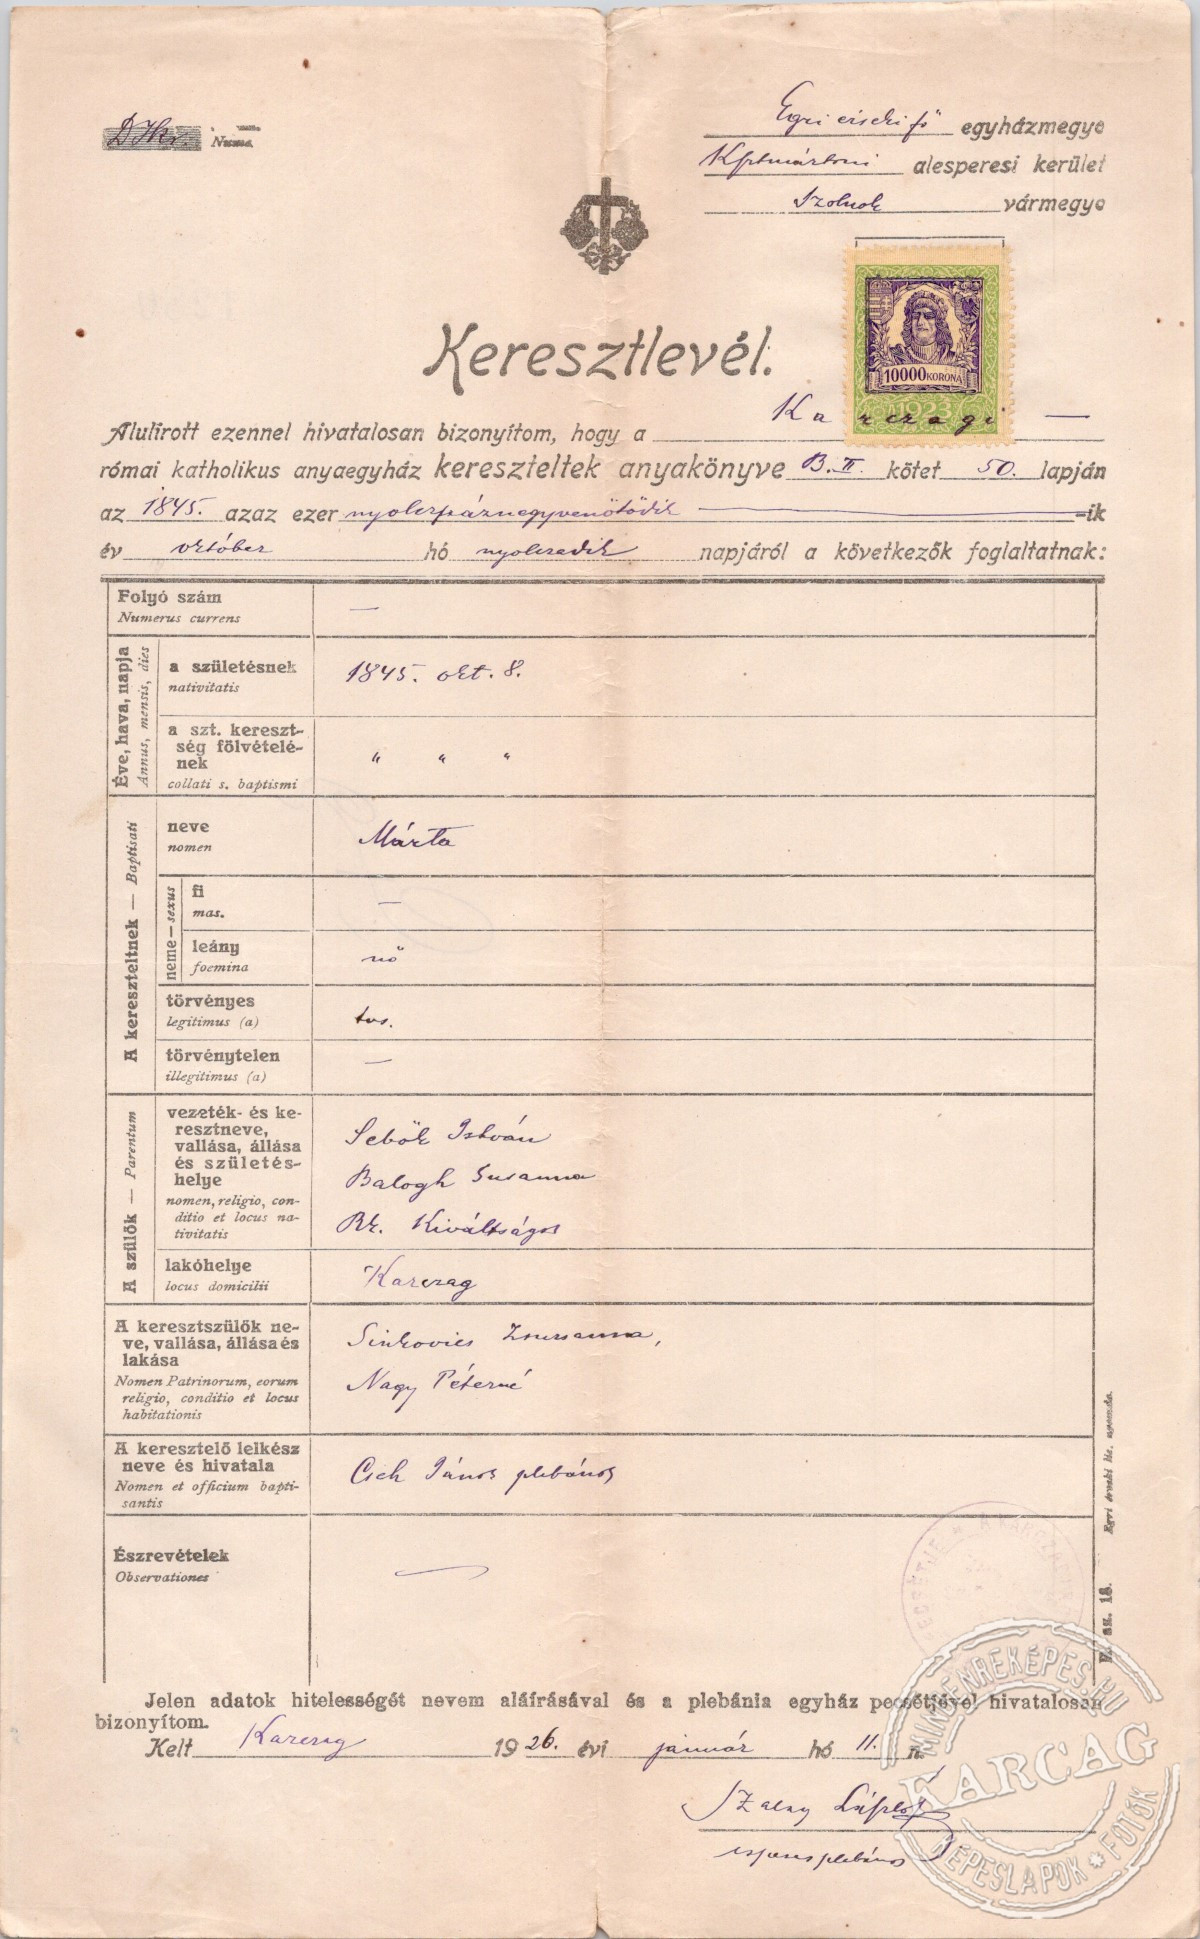 Num.
Egri érseki fő egyházmegye
Kptmártoni alesperesi kerület
Szolnok vármegye
10000 KORONA
1923
Keresztlevél.
Alulirott ezennel hivatalosan bizonyítom, hogy a Karczagi —
római katholikus anyaegyház kereszteltek anyakönyve B. II. kötet 50. lapján
az 1845. azaz ezer nyolczszáznegyvenötödik =ik
év október hó nyolczadik napjáról a következők foglaltatnak:
Folyó szám
Numerus currens
—
Éve, hava, napja
Annus, mensis, dies
a születésnek
nativitatis
1845. okt. 8.
a szt. kereszt-
ség fölvételé-
nek
collati s. baptismi
" " "
A kereszteltnek — Baptisati
neve
nomen
Márta
neme — sexus
fi
mas.
—
leány
foemina
nő
törvényes
legitimus (a)
tvs.
törvénytelen
illegitimus (a)
—
A szülők — Parentum
vezeték- és ke-
resztneve,
vallása, állása
és születés-
helye
nomen, religio, con-
ditio et locus na-
tivitatis
Sebők István
Balogh Susanna
Rk. Kiváltságos
lakóhelye
locus domicilii
Karczag
A keresztszülők ne-
ve, vallása, állása és
lakása
Nomen Patrinorum, eorum
religio, conditio et locus
habitationis
Sinkovics Zsuzsanna,
Nagy Péterné
A keresztelő lelkész
neve és hivatala
Nomen et officium bapti-
santis
Cseh János plebános
Észrevételek
Observationes
Egri érseki lic. nyomda.
sz. 18.
Jelen adatok hitelességét nevem aláírásával és a plebánia egyház pecsétjével hivatalosan
bizonyítom.
Kelt Karczag 1926. évi január hó 11. n.
Szalay László
esperesplebános
MINDENREKÉPES.HU
KARCAG
KÉPESLAPOK * FOTÓK